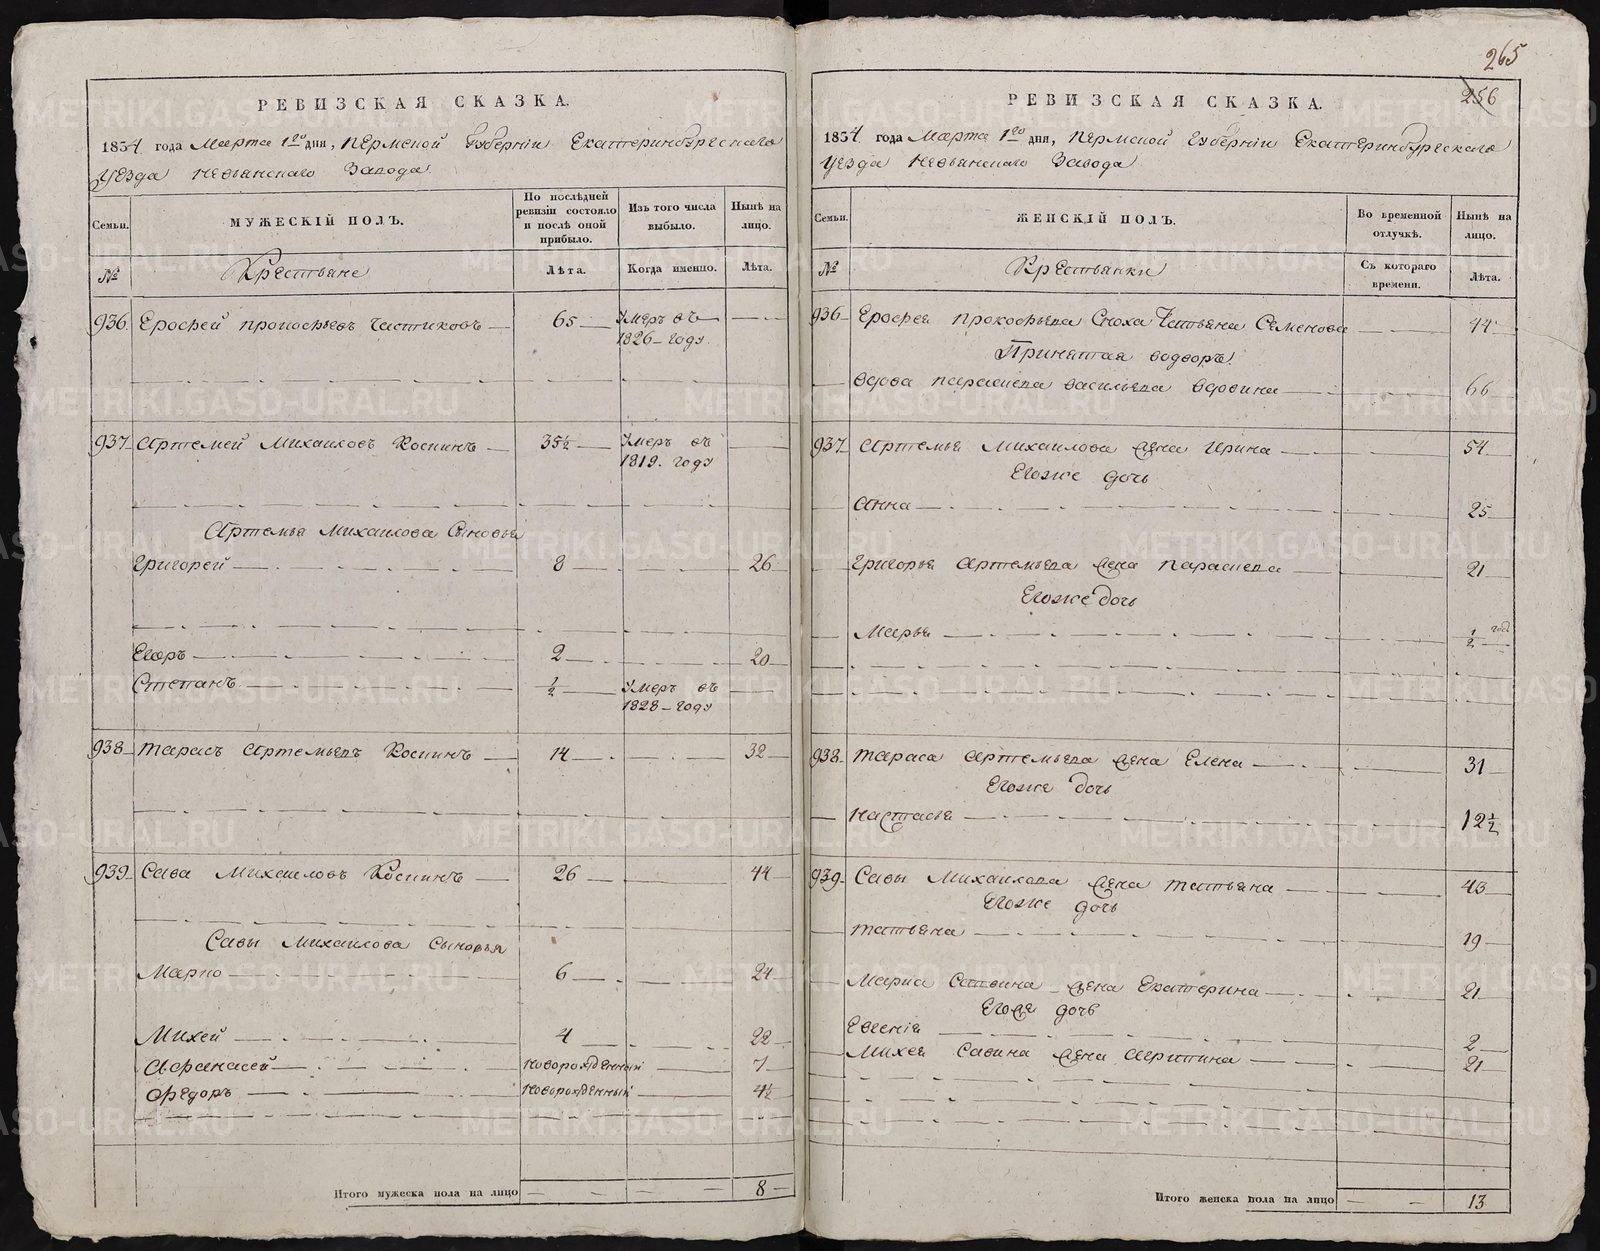 РЕВИЗСКАЯ СКАЗКА.
1834 года Марта 1го дня, Пермской Губернiи Екатеринбургскаго
уезда Невьянскаго Завода.
Семьи.
МУЖЕСКIЙ ПОЛЪ.
По послѣдней ревизiи состояло и послѣ оной прибыло.
Изъ того числа выбыло.
Нынѣ на лицо.
№
Крестьяне
Лѣта.
Когда именно.
Лѣта.
936 Ерофей Прокофьевъ 65 Умеръ въ
1826 году.
937 Артемей Михаиловъ 35½ Умеръ въ
1819. году
Артемья Михаилова Сыновья
Григорей 8 26
Егоръ 2 20
Степанъ ½ Умеръ въ
1828 году
938 Тарасъ Артемьевъ 14 32
939 Сава Михаиловъ 26 44
Савы Михаилова Сыновья
Марко 6 24
Михей 4 22
Афанасей Новорожденный 7
Федоръ Новорожденный 4½
Итого мужеска пола на лицо 8
265
256
РЕВИЗСКАЯ СКАЗКА.
1834 года Марта 1го дня, Пермской Губернiи Екатеринбургскаго
уезда Невьянскаго Завода
Семьи.
ЖЕНСКIЙ ПОЛЪ.
Во временной отлучкѣ.
Нынѣ на лицо.
№
Крестьянки
Съ котораго времени.
Лѣта.
936 Ерофея Прокофьева Сноха Татьяна Семенова 44
Принятая водворъ
вдова Парасковья Васильева 66
937 Артемья Михаилова жена Ирина 54
Егоже дочь
Анна 25
Григорья Артемьева жена Параскева 21
Егоже дочь
Марья ½ года
938 Тараса Артемьева жена Елена 31
Егоже дочь
Настасья 12½
939 Савы Михаилова жена Татьяна 43
Егоже дочь
Татьяна 19
Марка Савина жена Екатерина 21
Егоже дочь
Евгенiя 2
Михея Савина жена 21
Итого женска пола на лицо 13
METRIKI.GASO-URAL.RU